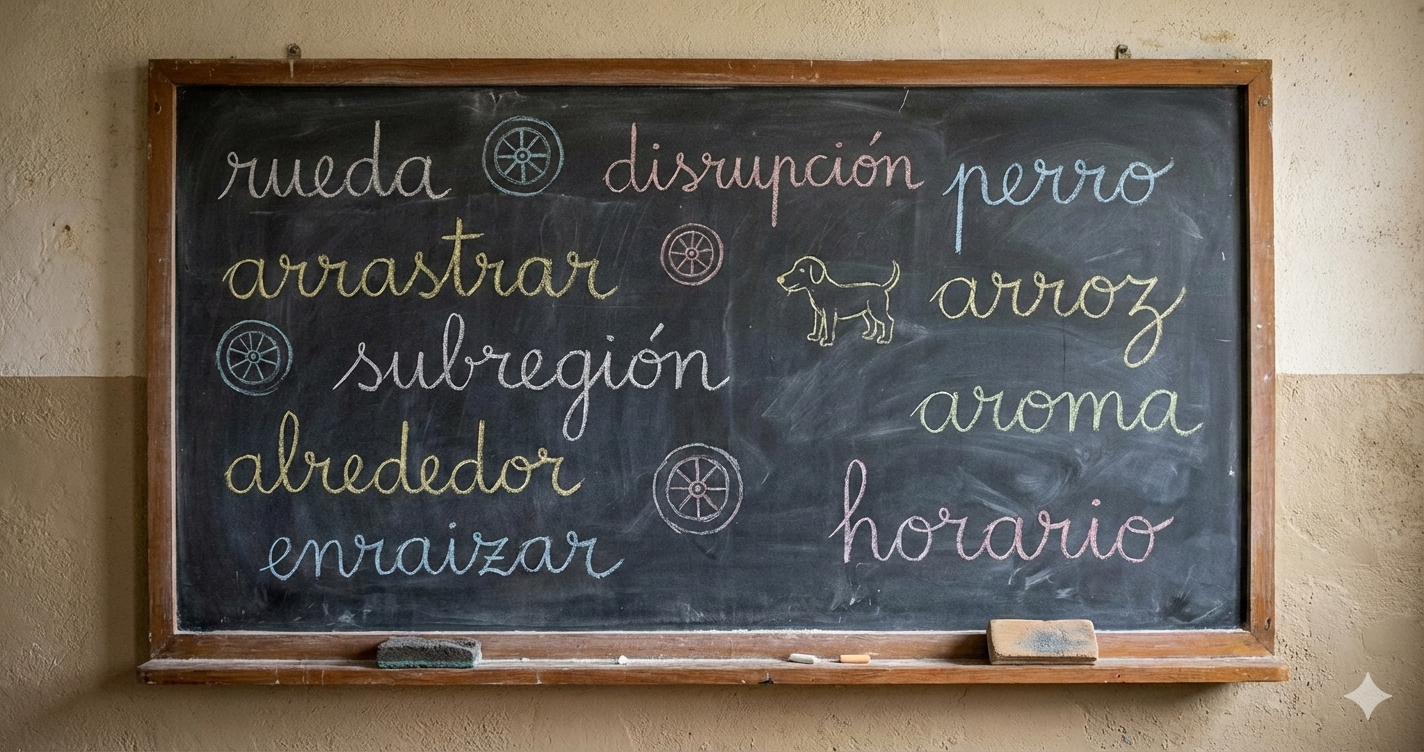 rueda disrupción perro
arrastrar arroz
subregión
aroma
alrededor
enraizar horario